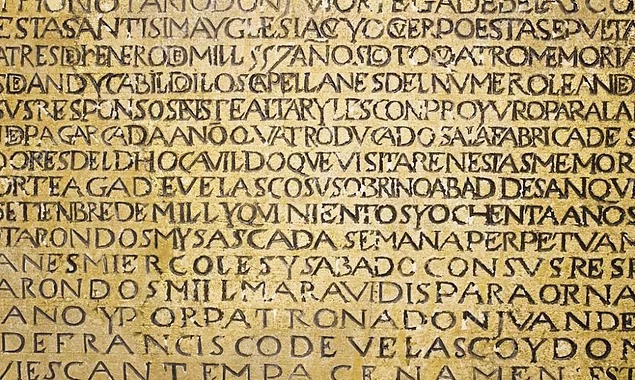 ESTASANTISIMAYGLESIACVYOCVERPOESTASEPVLTA
ATRESDENERODMILL 55ZAÑOSDOTOQATROMEMORIA
SDEANDYCABILDILOSCAPELLANESDELNVMEROLEANDE
SVSRESPONSOSNSTEALTARYLESCONPROYVROPARALA
DPAGARCADAAÑOQVATRODVCADOSALAFABRICADES
DORESDELDHOCAVILDOQVEVISITARENESTASMEMOR
ORTEAGADEVELASCOSVSOBRINOABADDESANQVI
SETIENBREDEMILLYQVINIENTOSYOCHENTAANOS
TARONDOSMYSASCADASEMANAPERPETVAM
ANESMIERCOLESYSABADOCONSVSRESP
ARONDOSMILLMARAVIDISPARAORNA
ANOYPORPATRONADONJVANDE
DEFRANCISCODEVELASCOYDON
VIESCANTEMPACENAMENEST